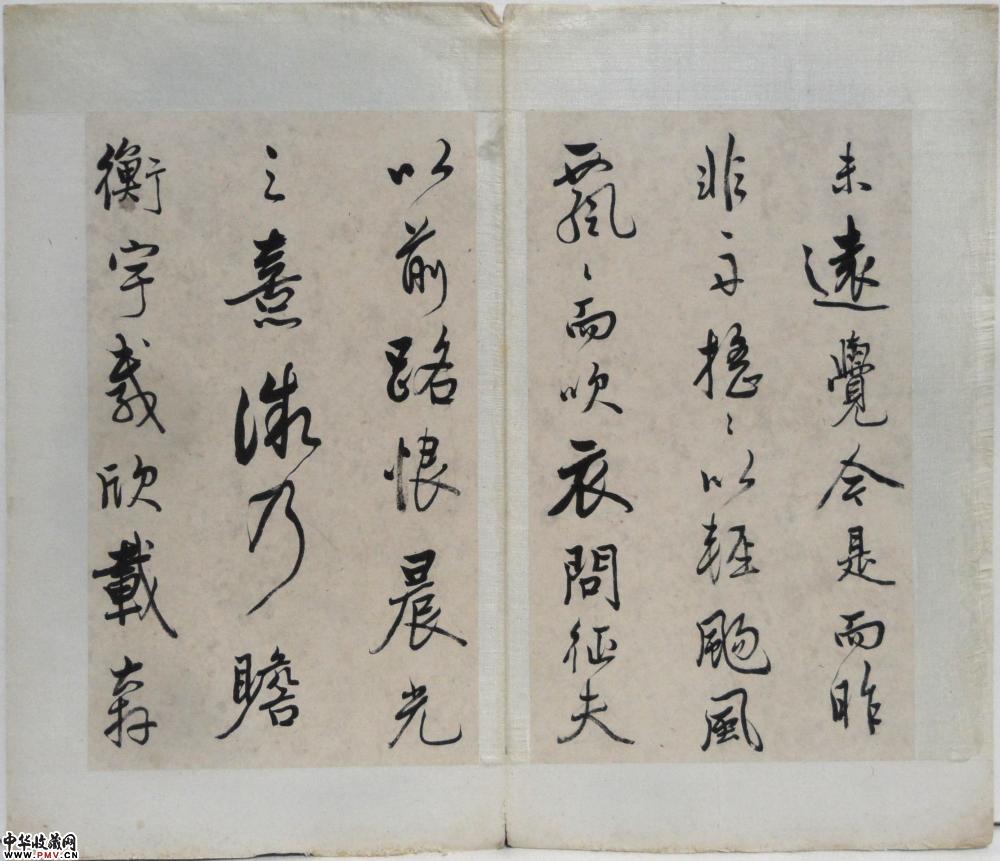 未遠覺今是而昨
非舟搖〻以輕颺風
飄〻而吹衣問征夫
以前路恨晨光
之熹微乃瞻
衡宇載欣載奔
中华收藏网
WWW.PMV.CN